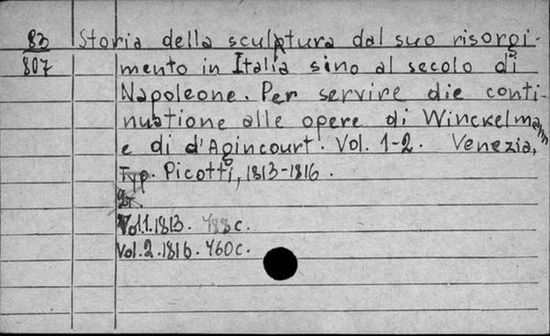 83 Storia della scultura dal suo risorgi-
807 mento in Italia sino al secolo di
Napoleone. Per servire die conti-
nuatione alle opere di Winckelmann
e di d'Agincourt. Vol. 1-2. Venezia,
Typ. Picotti, 1813-1816.
Vol.1.1813. 488c.
Vol.2.1816. 460c.